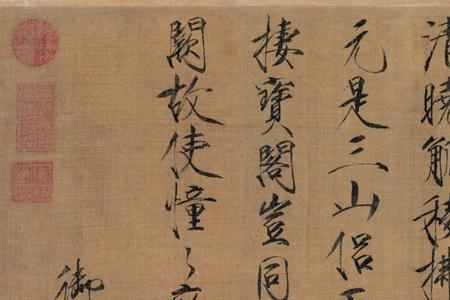 清曉觚稜拂
元是三山侶
棲寶閣豈同
闕故使憧〻
御